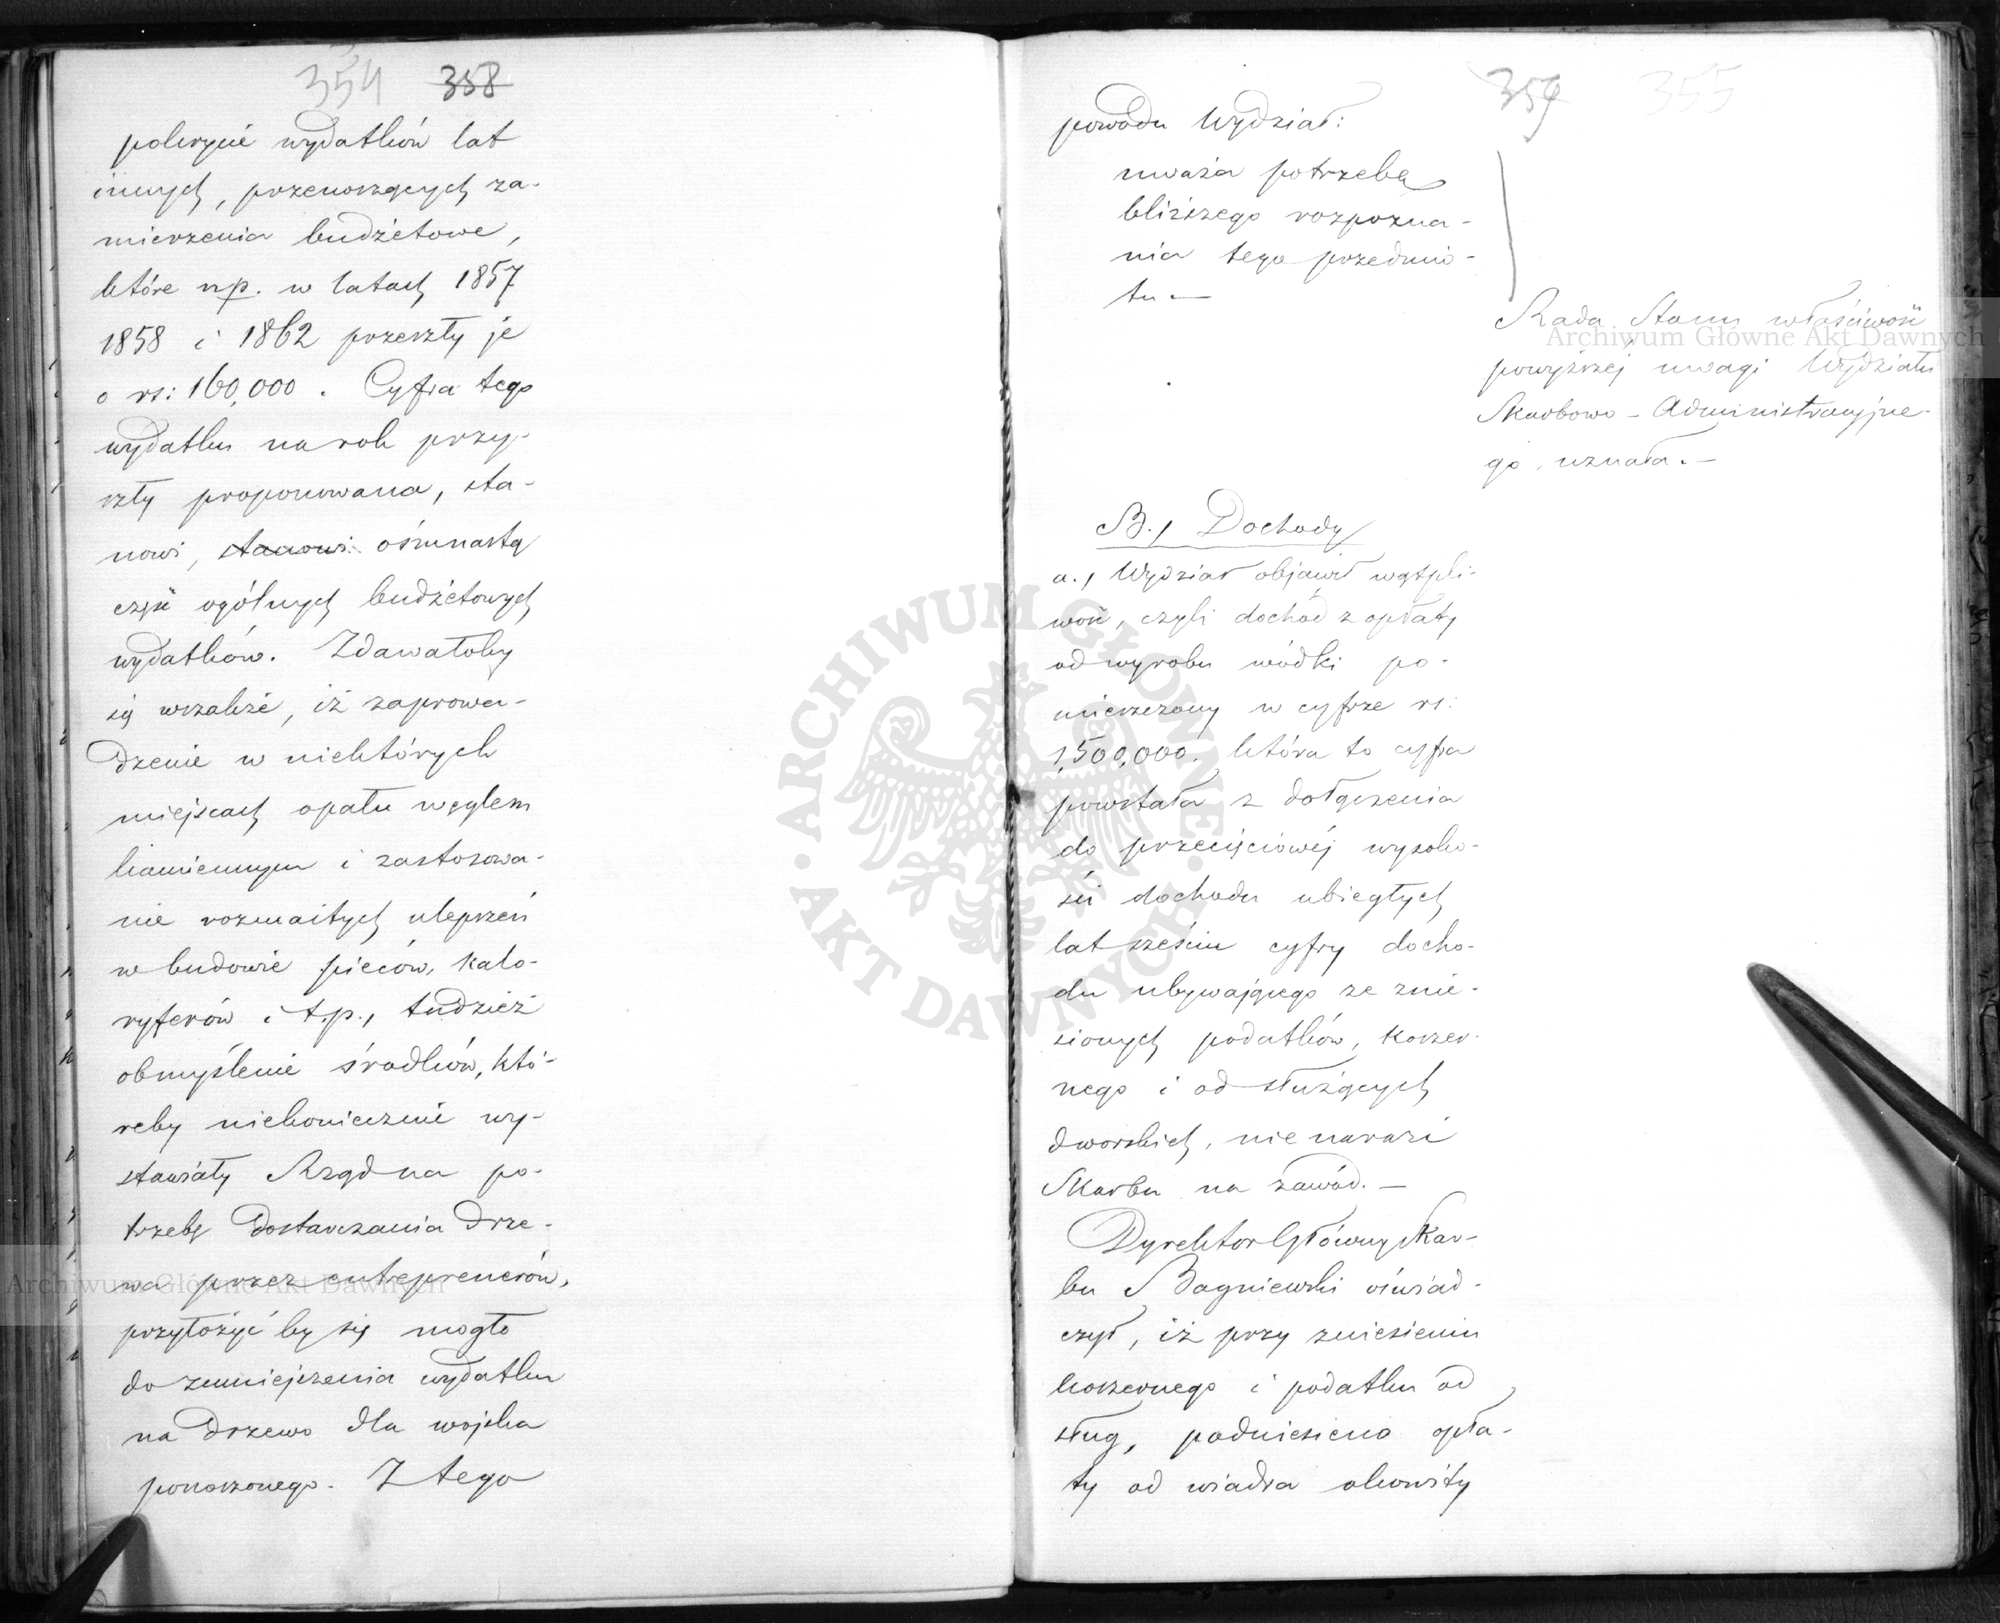 354 358
pokrycie wydatków lat
innych, przenoszących za-
mierzenia budżetowe,
które np. w latach 1857
1858 i 1862 przeszły je
o rs: 160,000. Cyfra tego
wydatku na rok przy-
szły proponowana, sta-
nowi, stanowi ośmnastą
część ogólnych budżetowych
wydatków. Zdawałoby
się wszakże, iż zaprowa-
dzenie w niektórych
miejscach opału węglem
kamiennym i zastosowa-
nie rozmaitych ulepszeń
w budowie pieców, kalo-
ryferów i t.p., tudzież
obmyślenie środków, któ-
reby niekoniecznie wy-
stawiały Rząd na po-
trzebę dostarczania drze-
wa przez entreprenerów,
przyłożyć by się mogło
do zmniejszenia wydatku
na drzewo dla wojska
ponoszonego. Z tego
359 355
powodu Wydział:
uważa potrzebę
bliższego rozpozna-
nia tego przedmio-
tu.—
Rada Stanu właściwość
powyższej uwagi Wydziału
Skarbowo-Administracyjne-
go, uznała.—
B./ Dochody
a./ Wydział objawił wątpli-
wość, czyli dochód z opłaty
od wyrobu wódki po-
mieszczony w cyfrze rs:
1,500,000. która to cyfra
powstała z dołączenia
do przecięciowéj wysoko-
ści dochodu ubiegłych
lat sześciu cyfry docho-
du ubywającego ze znie-
sionych podatków, koszer-
nego i od służących
dworskich, nie narazi
Skarbu na zawód.—
Dyrektor Główny Skar-
bu Bagniewski oświad-
czył, iż przy zniesieniu
koszernego i podatku od
sług, podniesiono opła-
ty od wiadra okowity
Archiwum Główne Akt Dawnych
Archiwum Główne Akt Dawnych
ARCHIWUM GŁÓWNE AKT DAWNYCH